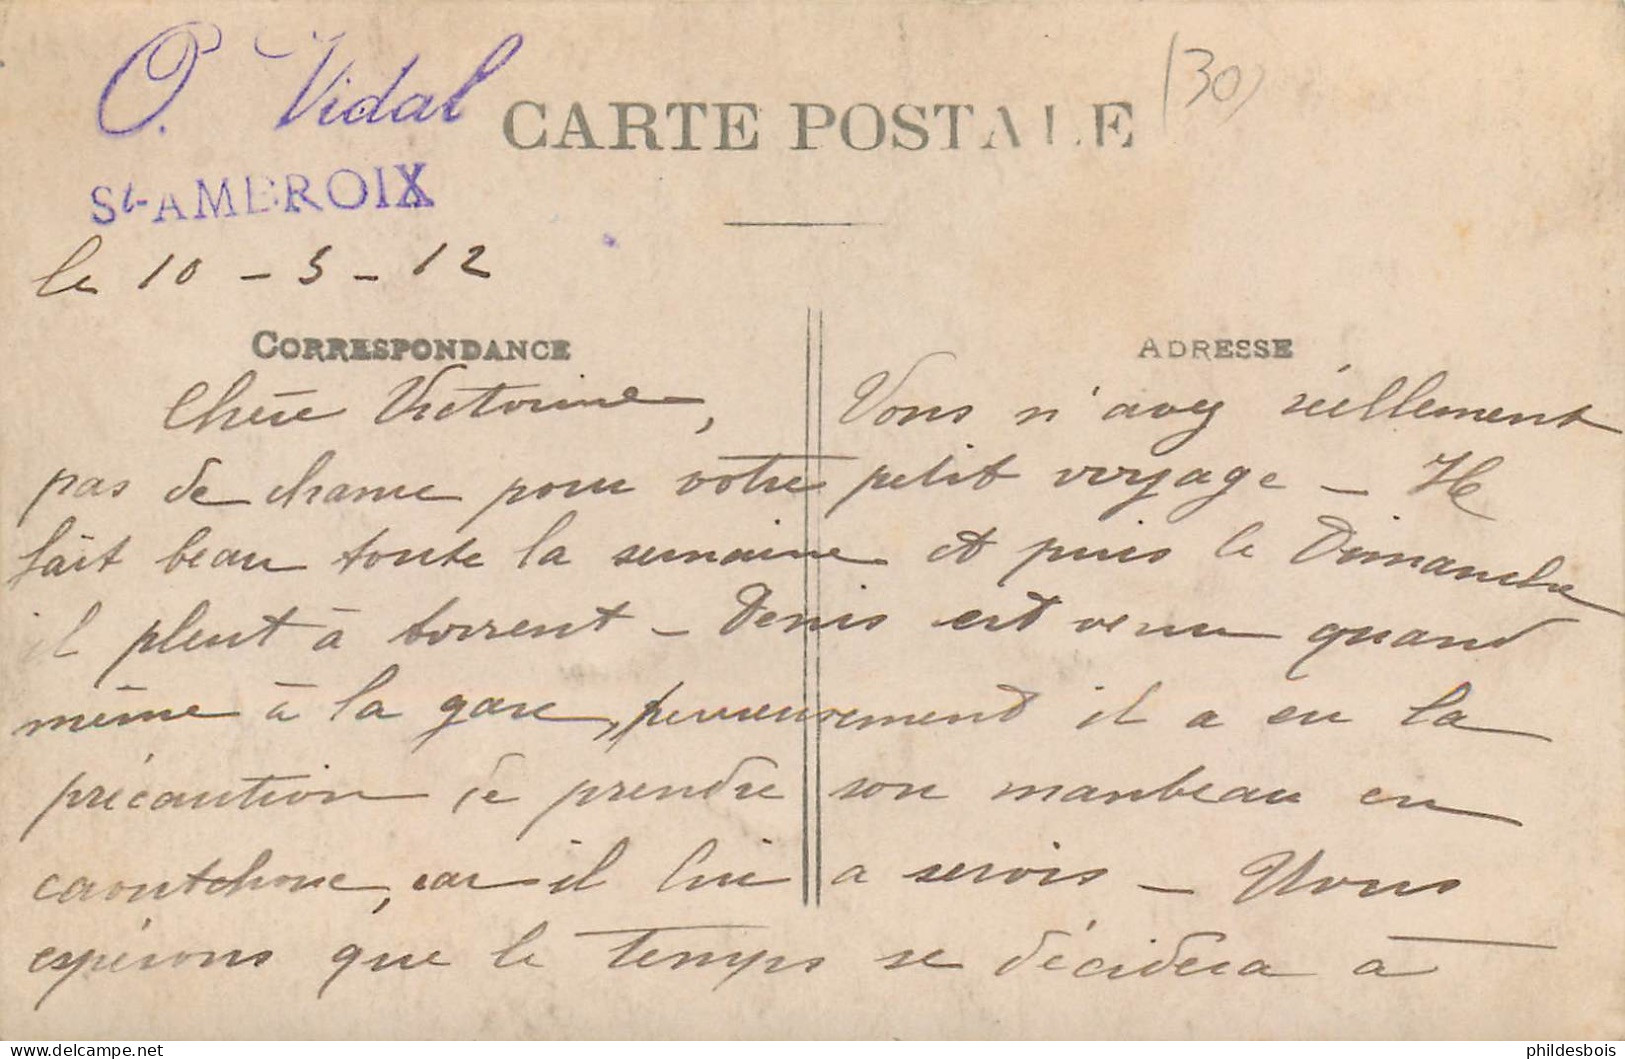 O. Vidal
CARTE POSTALE
(30)
St-AMBROIX
le 10 - 5 - 12
CORRESPONDANCE
ADRESSE
Chère Victorine, Vous n'avez réellement
pas de chance pour votre petit voyage - Il
fait beau toute la semaine et puis le Dimanche
il pleut à torrent - Denis est venu quand
même à la gare, heureusement il a eu la
précaution de prendre son manteau en
caoutchouc, car il lui a servis - Nous
espérons que le temps se décidera à
phildesbois